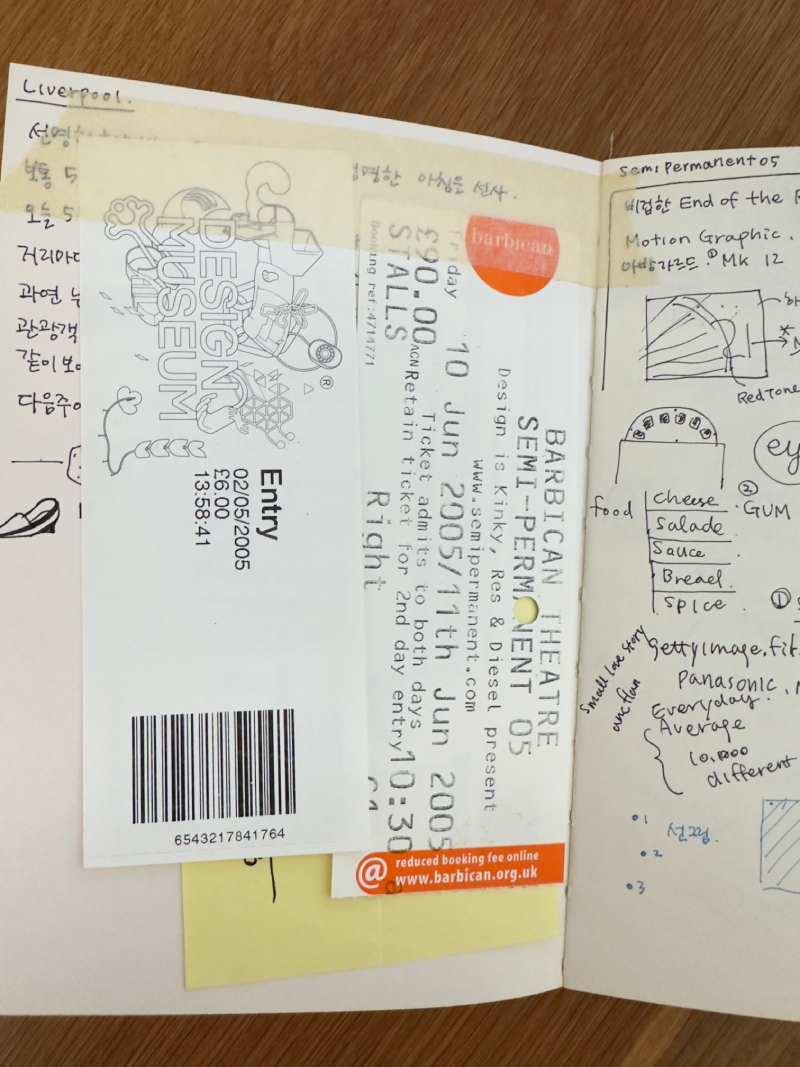 Liverpool.
보통 5
영한 아침을 선사.
오늘 5
거리마다
과연 는
관광객
같이 보
다음주
DESIGN
MUSEUM
®
Entry
02/05/2005
£6.00
13:58:41
6543217841764
barbican
BARBICAN THEATRE
SEMI-PERMANENT 05
Design is Kinky, Res & Diesel present
www.semipermanent.com
Friday 10 Jun 2005/11th Jun 2005 10:30
£90.00 ACN Ticket admits to both days
STALLS Retain ticket for 2nd day entry
Right
Booking ref:4714771
@ reduced booking fee online
www.barbican.org.uk
Semi Permanent 05
비접한 End of the
Motion Graphic.
아방가르드 ① Mk 12
Red Tone
ey
food
cheese
Salade
Sauce
Bread
Spice
② GUM
①
Small love story
gettyimage.
Panasonic.
Everyday.
Average
10,000
different
•1
•2
•3